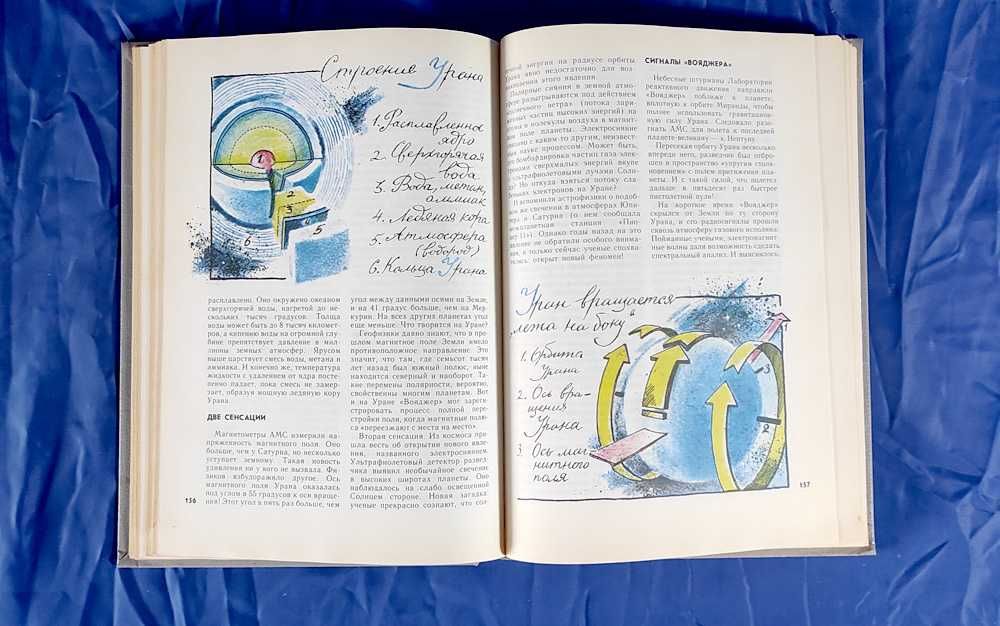 Строение Урана
1. Расплавленное
ядро
2. Сверхгорячая
вода
3. Вода, метан,
аммиак
4. Ледяная кора
5. Атмосфера
(водород)
6. Кольца Урана
1
2
3
4
5
6
расплавлено. Оно окружено океаном
сверхгорячей воды, нагретой до не-
скольких тысяч градусов. Толща
воды может быть до 8 тысяч километ-
ров, а кипению воды на огромной глу-
бине препятствует давление в мил-
лионы земных атмосфер. Ярусом
выше царствует смесь воды, метана и
аммиака. И конечно же, температура
жидкости с удалением от ядра посте-
пенно падает, пока смесь не замер-
зает, образуя мощную ледяную кору
Урана.
ДВЕ СЕНСАЦИИ
Магнитометры АМС измерили на-
пряженность магнитного поля. Оно
больше, чем у Сатурна, но несколько
уступает земному. Такая новость
удивления ни у кого не вызвала. Фи-
зиков взбудоражило другое. Ось
магнитного поля Урана оказалась
под углом в 55 градусов к оси враще-
ния! Этот угол в пять раз больше, чем
156
угол между данными осями на Земле,
и на 41 градус больше, чем на Мер-
курии. На всех других планетах угол
еще меньше. Что творится на Уране?
Геофизики давно знают, что в про-
шлом магнитное поле Земли имело
противоположное направление. Это
значит, что там, где семьсот тысяч
лет назад был южный полюс, ныне
находится северный и наоборот. Та-
кие перемены полярности, вероятно,
свойственны многим планетам. Вот
и на Уране «Вояджер» мог заре-
гистрировать процесс полной пере-
стройки поля, когда магнитные полю-
са «переезжают с места на место».
Вторая сенсация. Из космоса при-
шла весть об открытии нового явле-
ния, названного электросиянием.
Ультрафиолетовый детектор развед-
чика выявил необычайное свечение
в высоких широтах планеты. Оно
наблюдалось на слабо освещенной
Солнцем стороне. Новая загадка:
ученые прекрасно сознают, что сол-
энергии на радиусе орбиты
Урана явно недостаточно для воз-
этого явления.
Полярные сияния в земной атмо-
сфере разыгрываются под действием
ветра» (потока заря-
частиц высоких энергий) на
и молекулы воздуха в магнит-
поле планеты. Электросияние
с каким-то другим, неизвест-
науке процессом. Может быть,
бомбардировка частиц газа элек-
сверхмалых энергий вкупе
лучами Солн-
Но откуда взяться потоку сла-
электронов на Уране?
вспомнили астрофизики о подоб-
же свечении в атмосферах Юпи-
и Сатурна (о нем сообщала
станция «Пио-
Однако годы назад на это
не обратили особого внима-
и только сейчас ученые
открыт новый феномен!
СИГНАЛЫ «ВОЯДЖЕРА»
Небесные штурманы Лаборатории
реактивного движения направили
«Вояджер» поближе к планете,
вплотную к орбите Миранды, чтобы
полнее использовать гравитацион-
ную силу Урана. Следовало разо-
гнать АМС для полета к последней
планете-великану — к Нептуну.
Пересекая орбиту Урана несколько
впереди него, разведчик был отбро-
шен в пространство «упругим столк-
новением» с полем притяжения плане-
ты. И с такой силой, что полетел
дальше в пятьдесят раз быстрее
пистолетной пули!
На короткое время «Вояджер»
скрылся от Земли по ту сторону
Урана, и его радиосигналы прошли
сквозь атмосферу газового исполина.
Пойманные учеными, электромагнит-
ные волны дали возможность сделать
спектральный анализ. И выяснилось,
Уран вращается
лета на боку"
1. Орбита
Урана
2. Ось вра-
щения
Урана
3. Ось маг-
нитного
поля
1
3
2
157